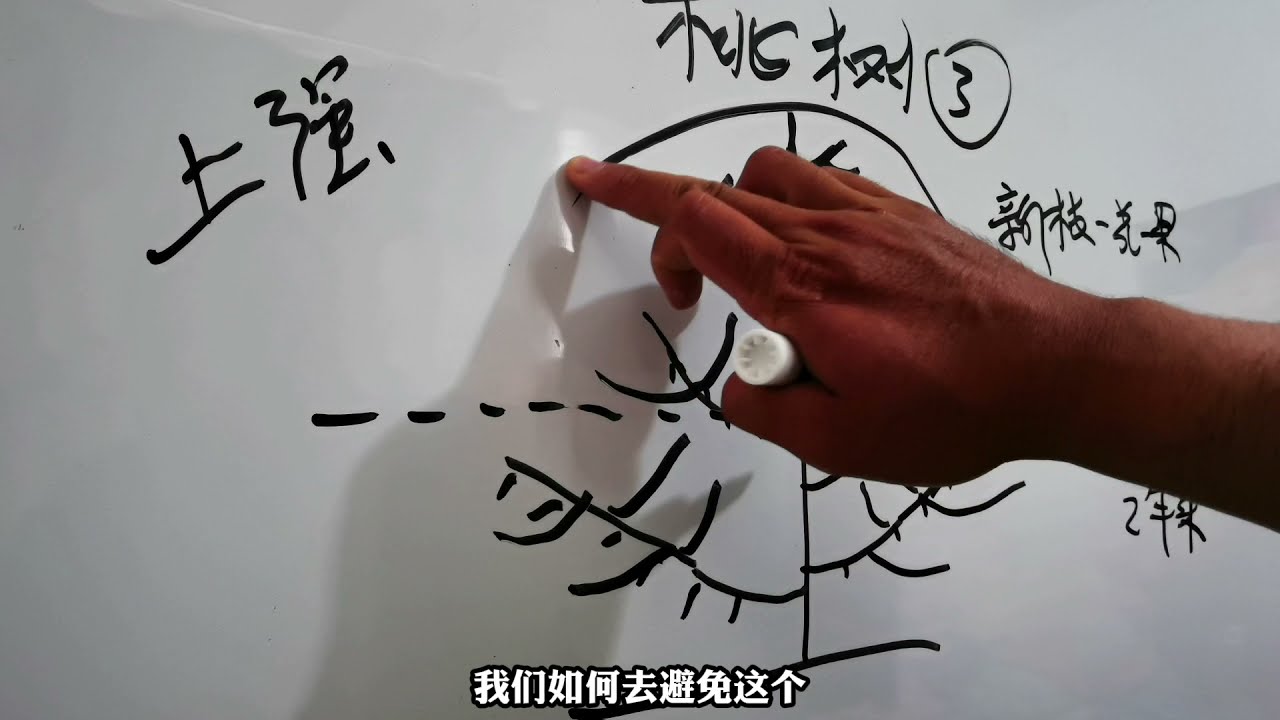 桃树③
上强
新枝-花果
2年来
我们如何去避免这个